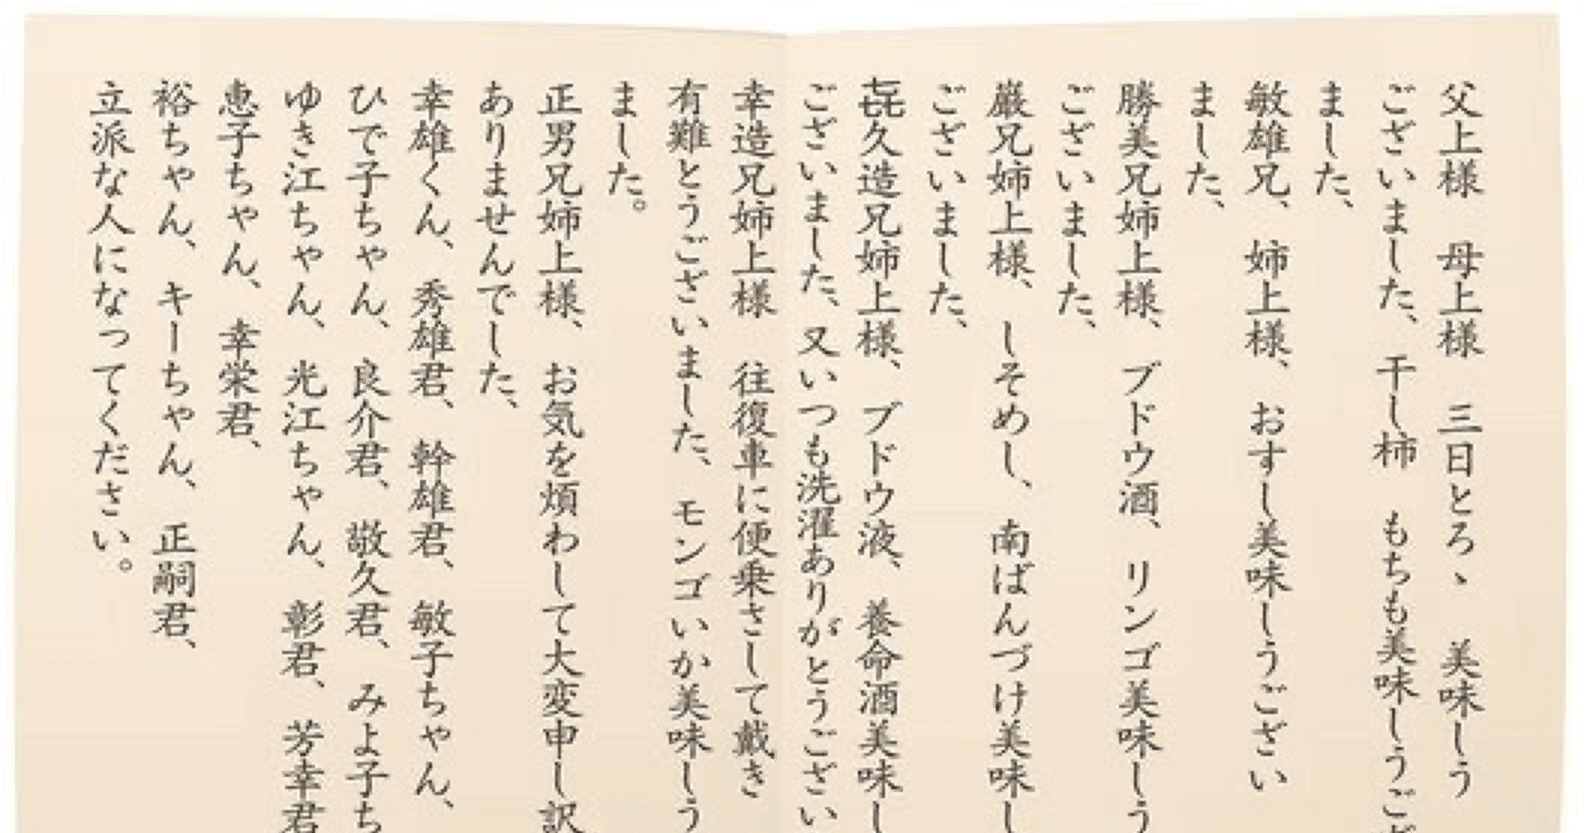 父上様　母上様　三日とろゝ　美味しう
ございました、干し柿　もちも美味しうござ
ました、
敏雄兄、姉上様、おすし美味しうござい
ました、
勝美兄姉上様、ブドウ酒、リンゴ美味しう
ございました、
巌兄姉上様、しそめし、南ばんづけ美味し
ございました、
㐂久造兄姉上様、ブドウ液、養命酒美味し
ございました、又いつも洗濯ありがとうござい
幸造兄姉上様　往復車に便乗さして戴き
有難とうございました、モンゴいか美味しう
ました。
正男兄姉上様、お気を煩わして大変申し訳
ありませんでした、
幸雄くん、秀雄君、幹雄君、敏子ちゃん、
ひで子ちゃん、良介君、敬久君、みよ子ち
ゆき江ちゃん、光江ちゃん、彰君、芳幸君
恵子ちゃん、幸栄君、
裕ちゃん、キーちゃん、正嗣君、
立派な人になってください。